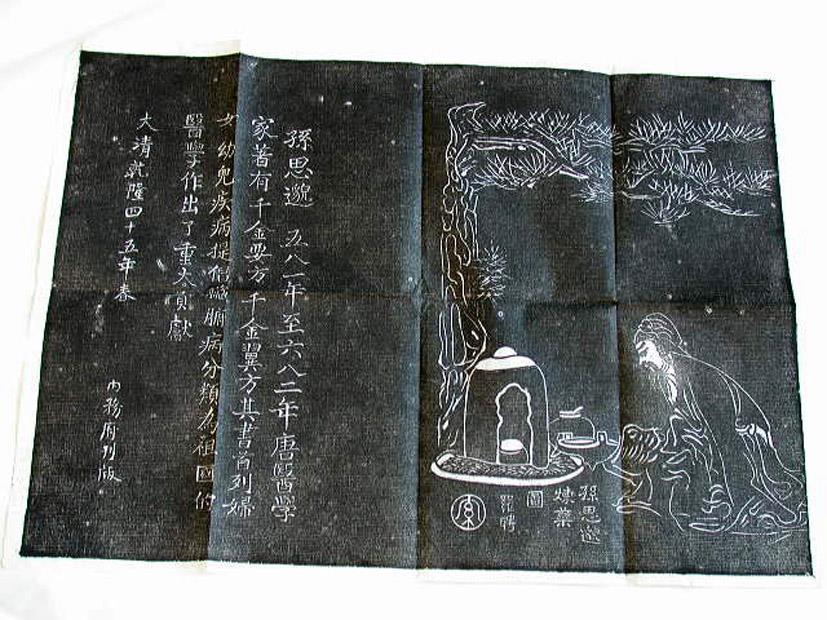 孫思邈
煉藥
圖
羅聘
孫思邈 五八一年至六八二年唐醫學
家著有千金要方千金翼方其書首列婦
女幼兒疾病提倡臟腑病分類為祖國的
醫學作出了重大貢獻
大清乾隆四十五年春
內務府刊版